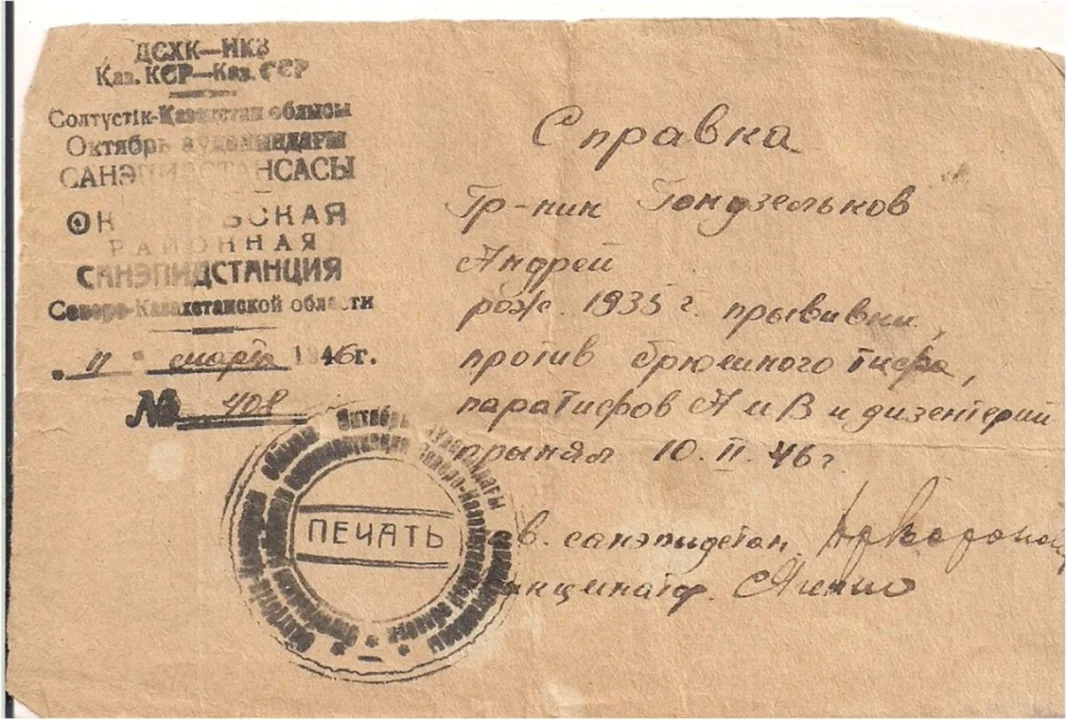 ДСХК—НКЗ
Қаз. КСР—Каз. ССР
Солтүстік-Қазақстан облысы
Октябрь ауданындағы
САНЭПИДСТАНСАСЫ
РАЙОННАЯ
САНЭПИДСТАНЦИЯ
Северо-Казахстанской области
11 " марта 1946г.
№ 408
Справка
Гр-нин Гондзельков
Андрей
рож. 1935 г. прививки
против брюшного тифа,
паратифов А и В и дизентерии
принял 10. II. 46г.
санэпидстан.
ПЕЧАТЬ